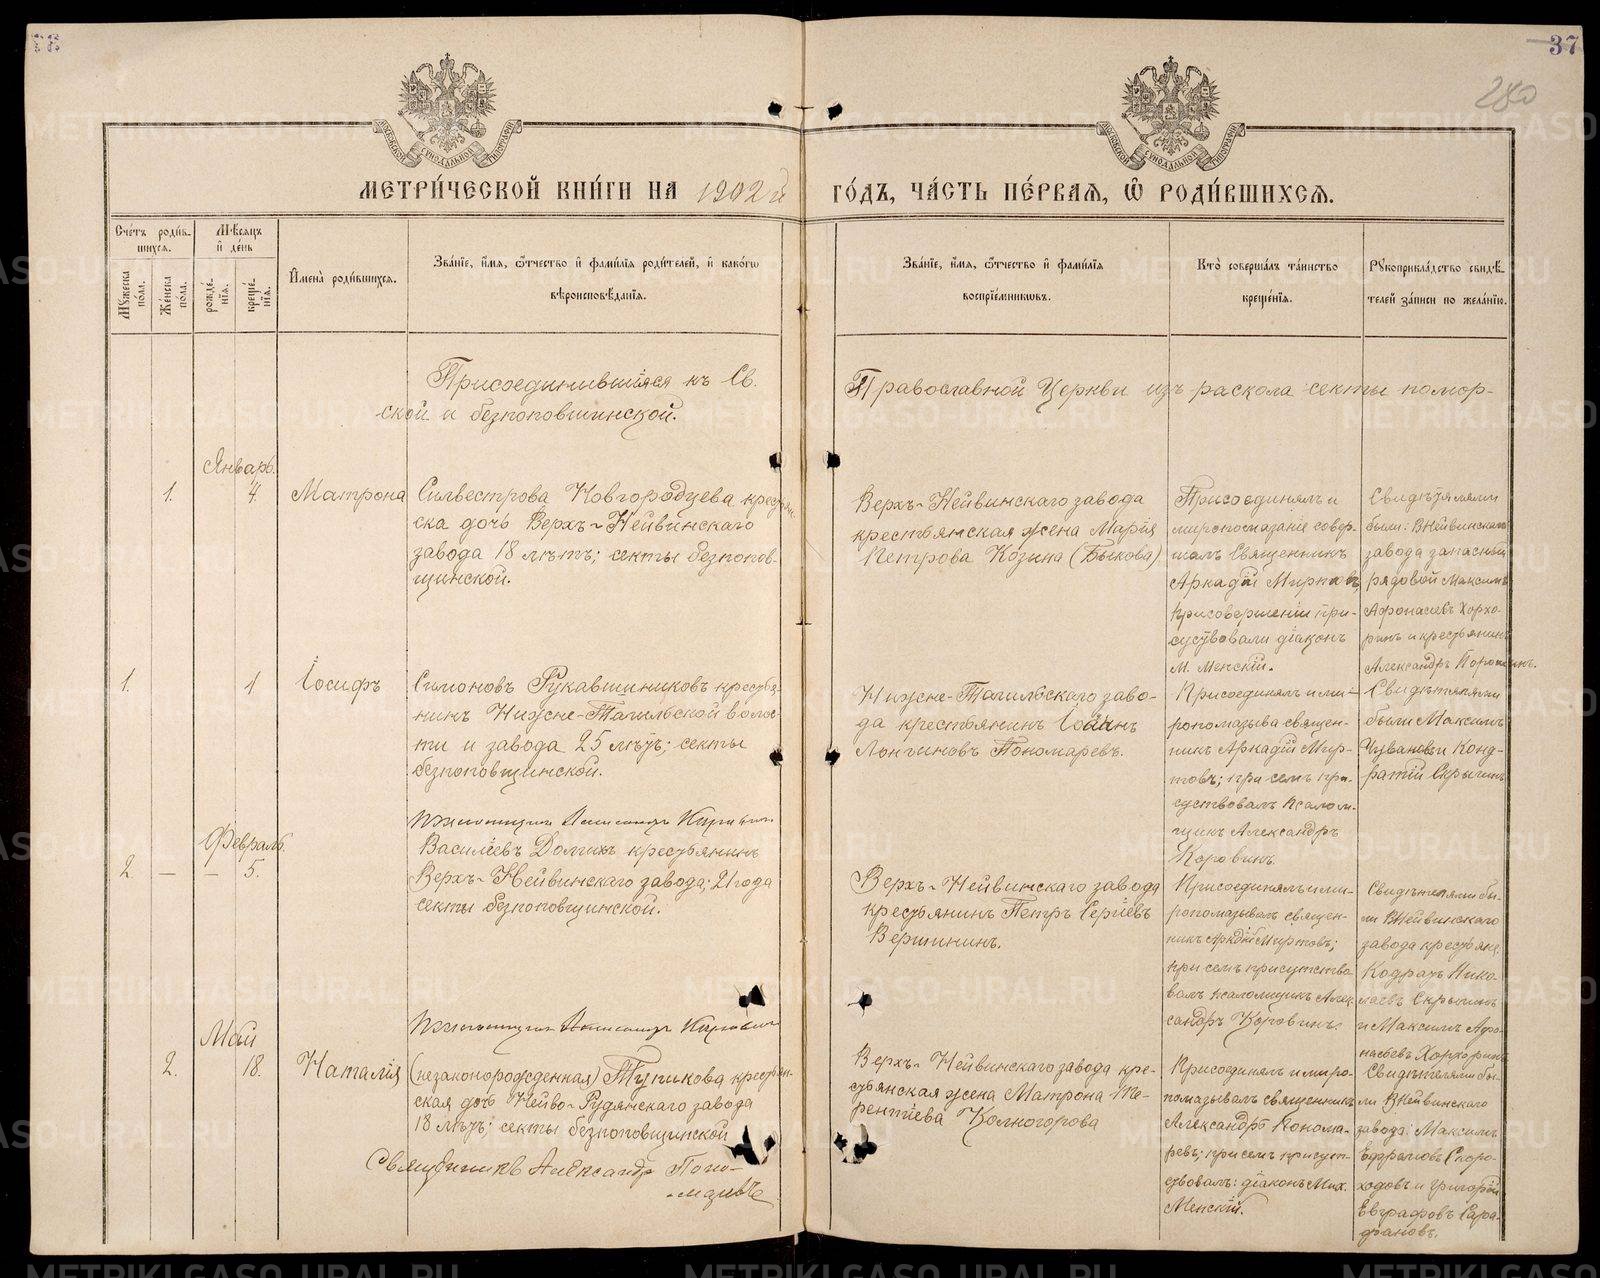 37
280
МОСКОВСКОЙ СУНОДАЛЬНОЙ ТИПОГРАФІИ
МОСКОВСКОЙ СУНОДАЛЬНОЙ ТИПОГРАФІИ
МЕТРИ́ЧЕСКОЙ КНИ́ГИ НА 1902 й ГО́ДЪ, ЧА́СТЬ ПЕ́РВАЯ, Ѽ РОДИ́ВШИХСЯ.
Сче́тъ роди́в-
шихся.
Мѣ́сяцъ
и҆ де́нь
Мꙋ́жеска
по́ла.
Же́нска
по́ла.
рожде́-
нїя.
креще́-
нїя.
И҆мена̀ роди́вшихся.
Зва́нїе, и҆́мя, ѻ҆́тчество и҆ фами́лїя роди́телей, и҆ како́гѡ
вѣроисповѣ́данїя.
Зва́нїе, и҆́мя, ѻ҆́тчество и҆ фами́лїя
воспрїе́мникѡвъ.
Кто̀ соверша́лъ та́инство
креще́нїя.
Рꙋкоприкла́дство свидѣ́-
телей за́писи по жела́нїю.
Присоединившіяся къ Св. Православной Церкви изъ раскола секты помор-
ской и безпоповшинской.
Январь.
1. 4. Матрона
Сильвестрова Новгородцева кресть
ска дочь Верхъ-Нейвинскаго
завода 18 лѣтъ; секты безпопов-
щинской.
Верхъ-Нейвинскаго завода
крестьянская жена Марія
Петрова Козина (Быкова)
Присоединялъ и
миропомазаніе совер-
шалъ Священникъ
Аркадій Миртовъ,
присовершеніи при-
сутвовали діаконъ
М. Менскій.
Свидѣтялями
были: ВНейвинскаго
завода запасный
рядовой Максимъ
Афонасіевъ Хорхо-
ринъ и крестьянинъ
Александръ
1. 1 Іосифъ
Симоновъ Рукавшиниковъ кресть
нинъ Нижне-Тагильской волос-
ти и завода 25 лѣтъ; секты
безпоповщинской.
Нижне-Тагильскаго заво-
да крестьянинъ Іоаннъ
Лонгиновъ Пономаревъ.
Присоединялъ и ми-
ропомазыва священ-
никъ Аркадій Мир-
товъ; при семъ при-
сутствовалъ псалом-
щикъ Александръ
Коровинъ
Свидѣтялями
были Максимъ
Чувановъ и Конд-
ратій Скрыпинъ
Псаломщикъ Александръ Коровинъ
Февраль.
2. — — 5.
Василіевъ Долгихъ крестьянинъ
Верхъ-Нейвинскаго завода; 21 года
секты безпоповщинской.
Верхъ-Нейвинскаго завода
крестьянинъ Петръ Сергіевъ
Вершининъ.
Присоединялъ и ми-
ропомазывалъ священ-
никъ Аркадій Миртовъ;
при семъ присутство
валъ псаломщикъ Алек
сандръ Коровинъ.
Свидѣтелями бы-
ли ВНейвинскаго
завода крестьяне
Кодратъ Нико-
лаевъ Скрыпинъ
и Максимъ Афо-
насьевъ Хорхоринъ
Псаломщикъ Александръ Коровинъ
Май
2. 18. Наталія
(незаконорожденная) Тупикова крестьян-
ская дочь Нейво-Рудянскаго завода
18 лѣтъ; секты безпоповщинской
Верхъ-Нейвинскаго завода кре-
стьянская жена Матрона Те-
рентіева Колногорова
Присоединялъ и миро-
помазывалъ священникъ
Александръ Понома-
ревъ; при семъ присут-
ствовалъ: діаконъ Мих.
Менскій.
Свидѣтелями бы-
ли ВНейвинскаго
завода: Максимъ
Ефремовъ Скоро-
ходовъ и Григорій
Евграфовъ Сара-
фановъ.
Священникъ Александр Поно-
маревъ
METRIKI.GASO-URAL.RU